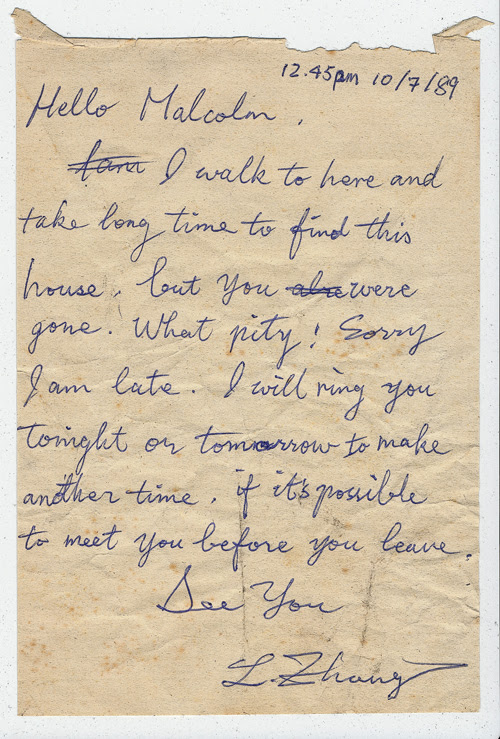 12.45pm 10/7/89
Hello Malcolm,
I walk to here and
take long time to find this
house, but you were
gone. What pity! Sorry
I am late. I will ring you
tonight or tomorrow to make
another time, if it's possible
to meet you before you leave.
See You
L. Zhang